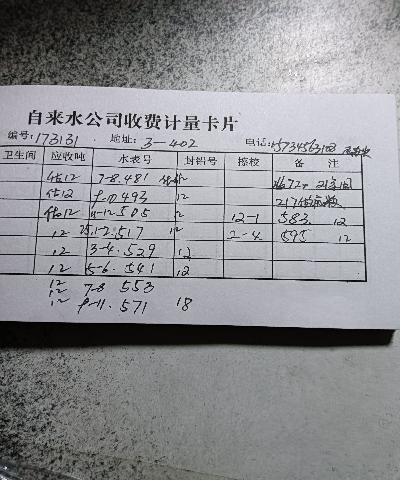 自来水公司收费计量卡片
编号:173131 地址: 3-402 电话:
卫生间 应收吨 水表号 封铅号 接校 备 注
估12 7-8.481 12
估12 9-10 493 12
估12 11-12.505 12 12-1 583 12
12 25.1-2.517 12 2-4 595 12
12 3-4.529 12
12 5-6.541 12
12 7-8 553
12 9-11.571 18